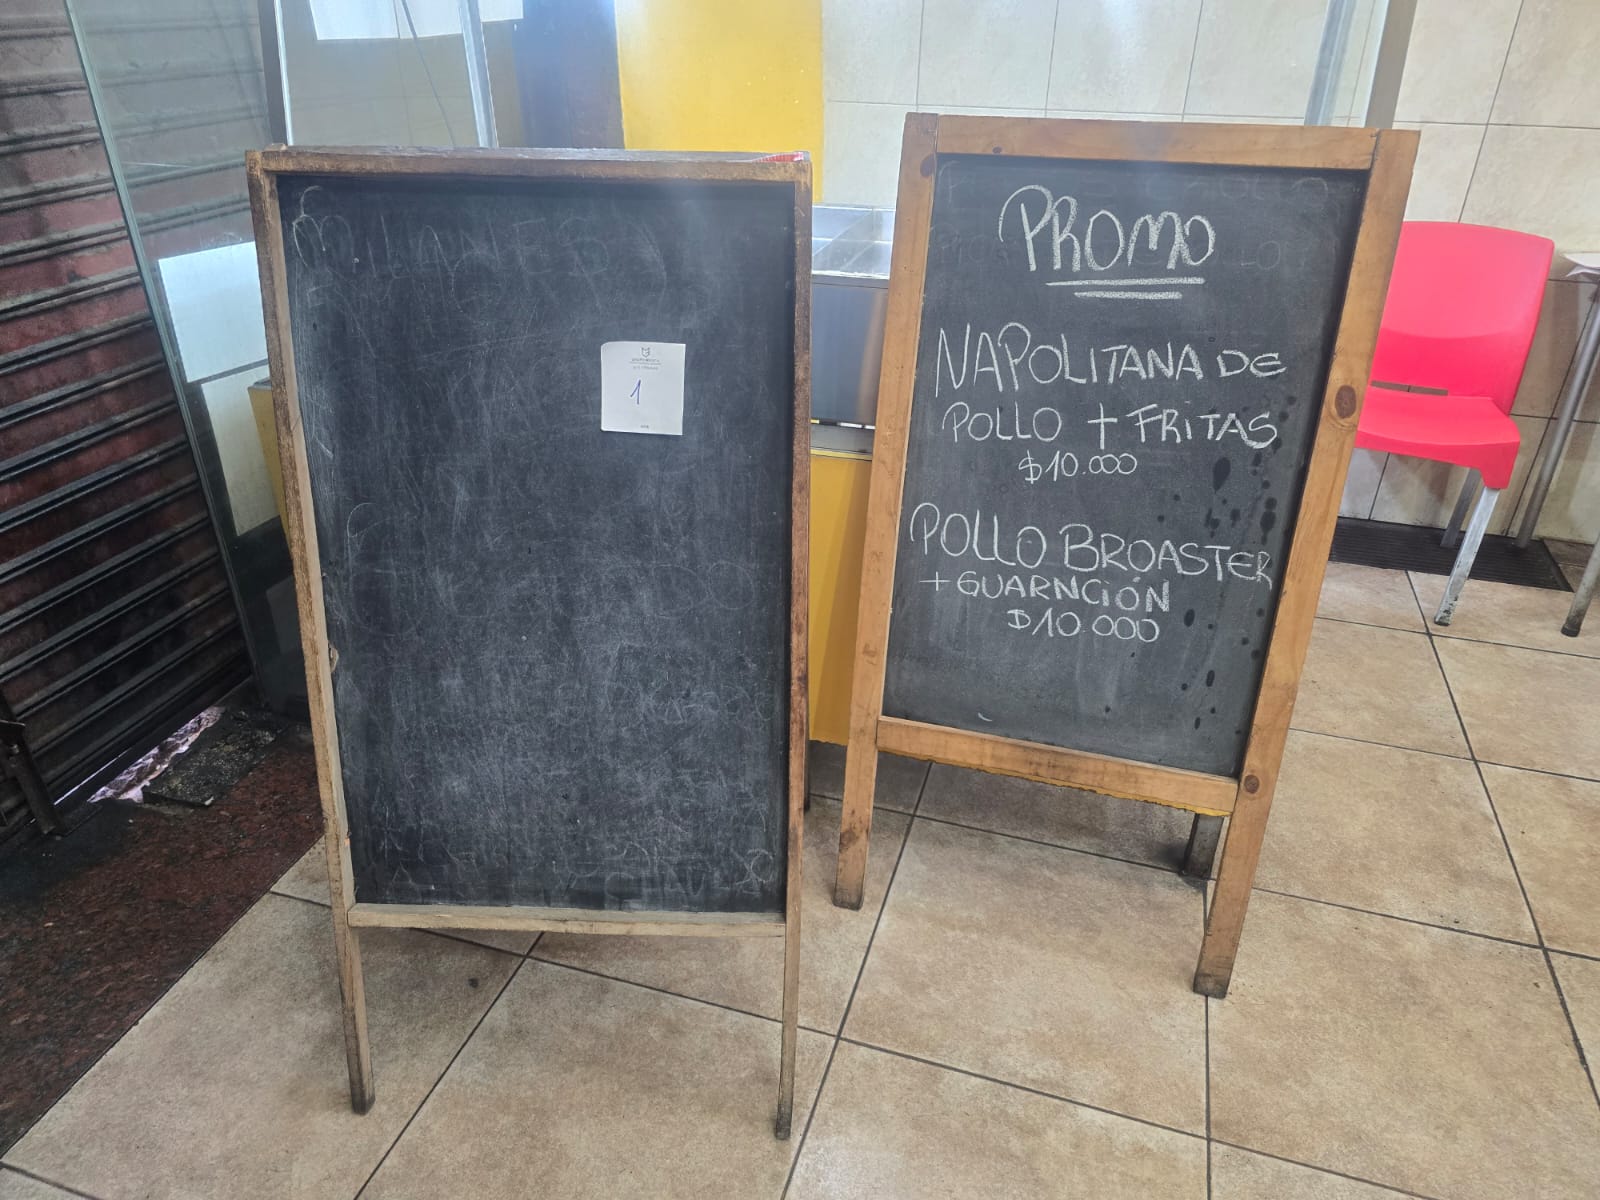 MILANESA
1
PROMO
NAPOLITANA DE
POLLO + FRITAS
$10.000
POLLO BROASTER
+ GUARNCIÓN
$10.000